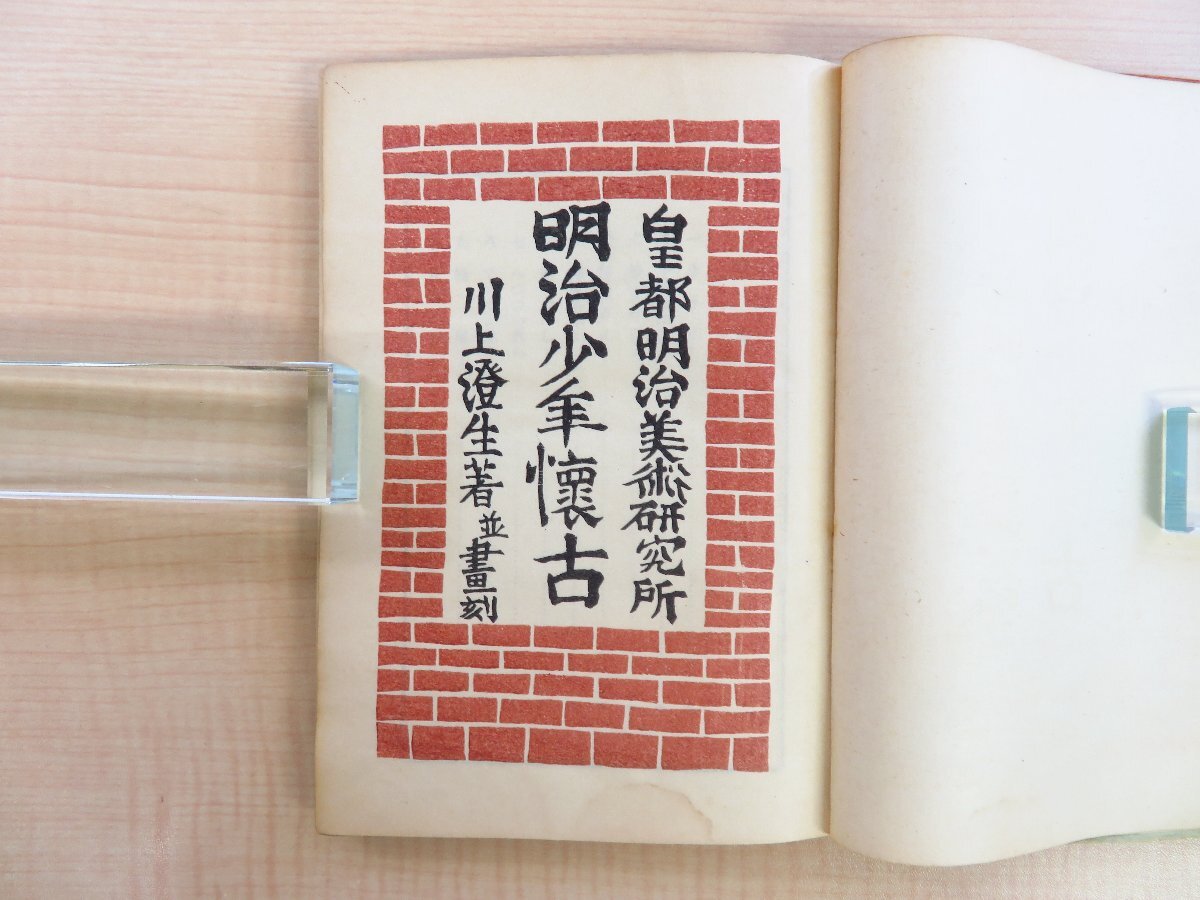 皇都明治美術研究所
明治少年懷古
川上澄生著並畫刻